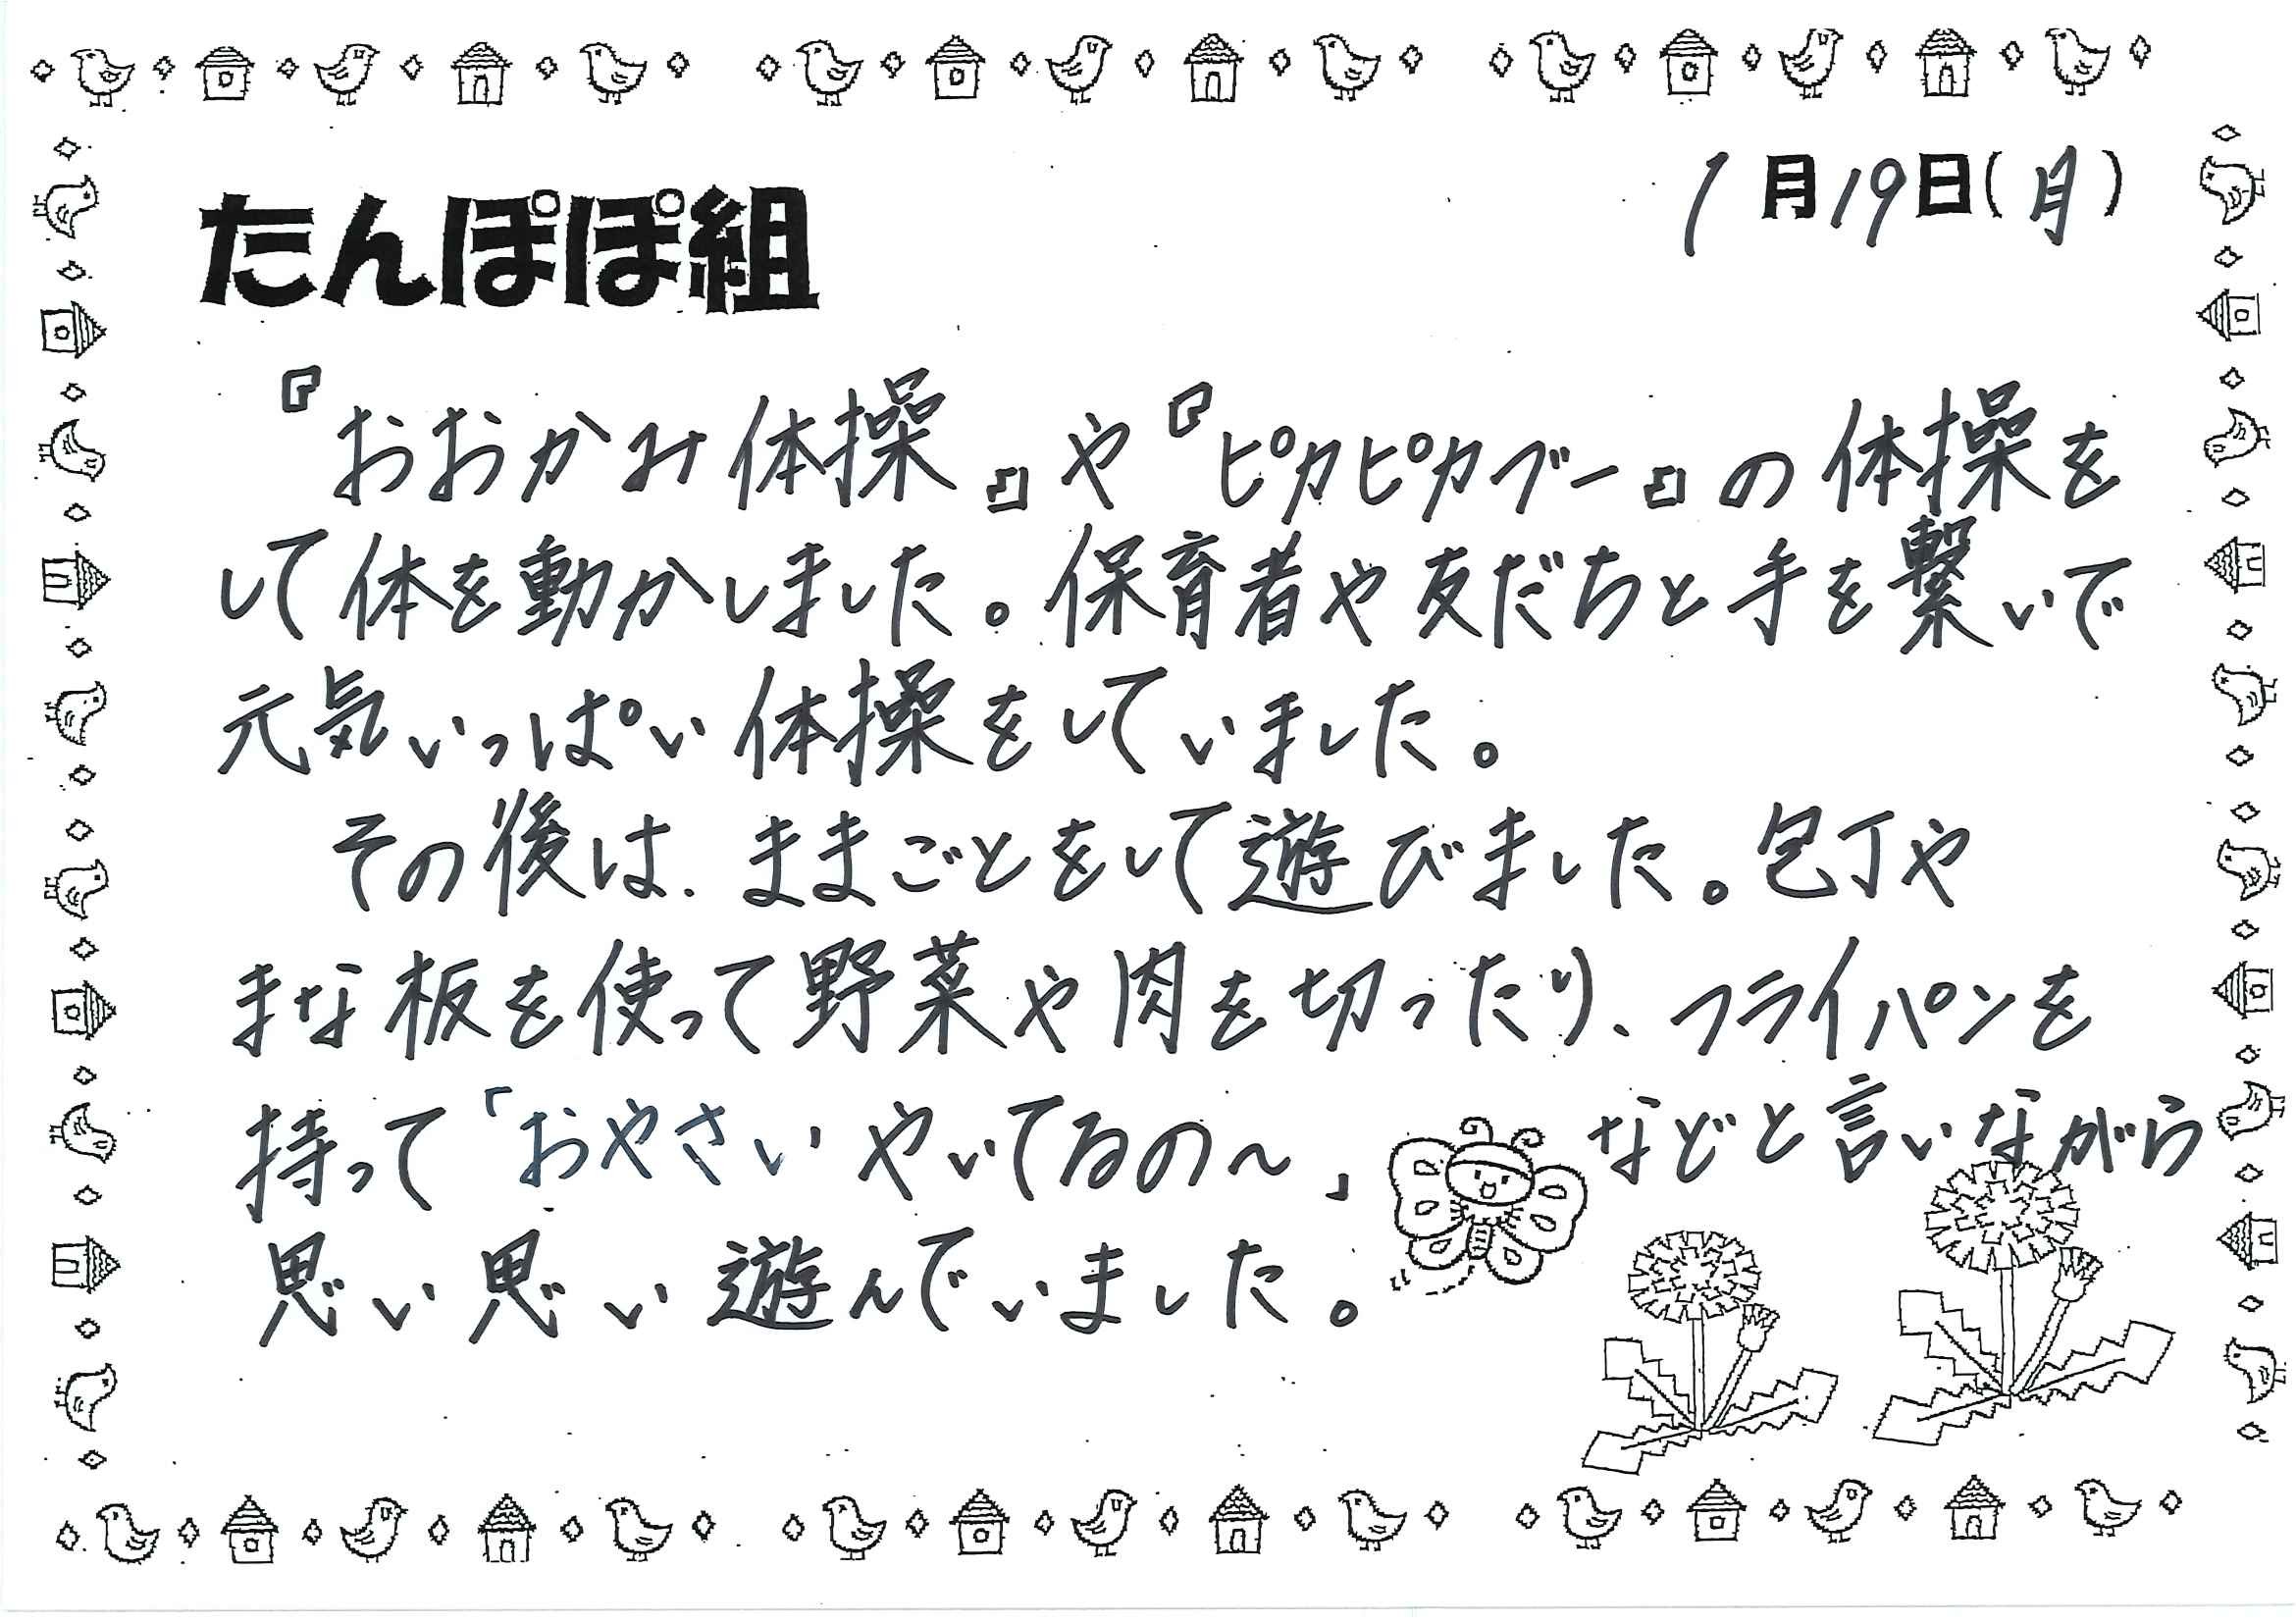 1月19日(月)
たんぽぽ組
『おおかみ体操』や『ピカピカブー』の体操を
して体を動かしました。保育者や友だちと手を繋いで
元気いっぱい体操をしていました。
その後は、ままごとをして遊びました。包丁や
まな板を使って野菜や肉を切ったり、フライパンを
持って「おやさいやいてるの〜」などと言いながら
思い思い遊んでいました。